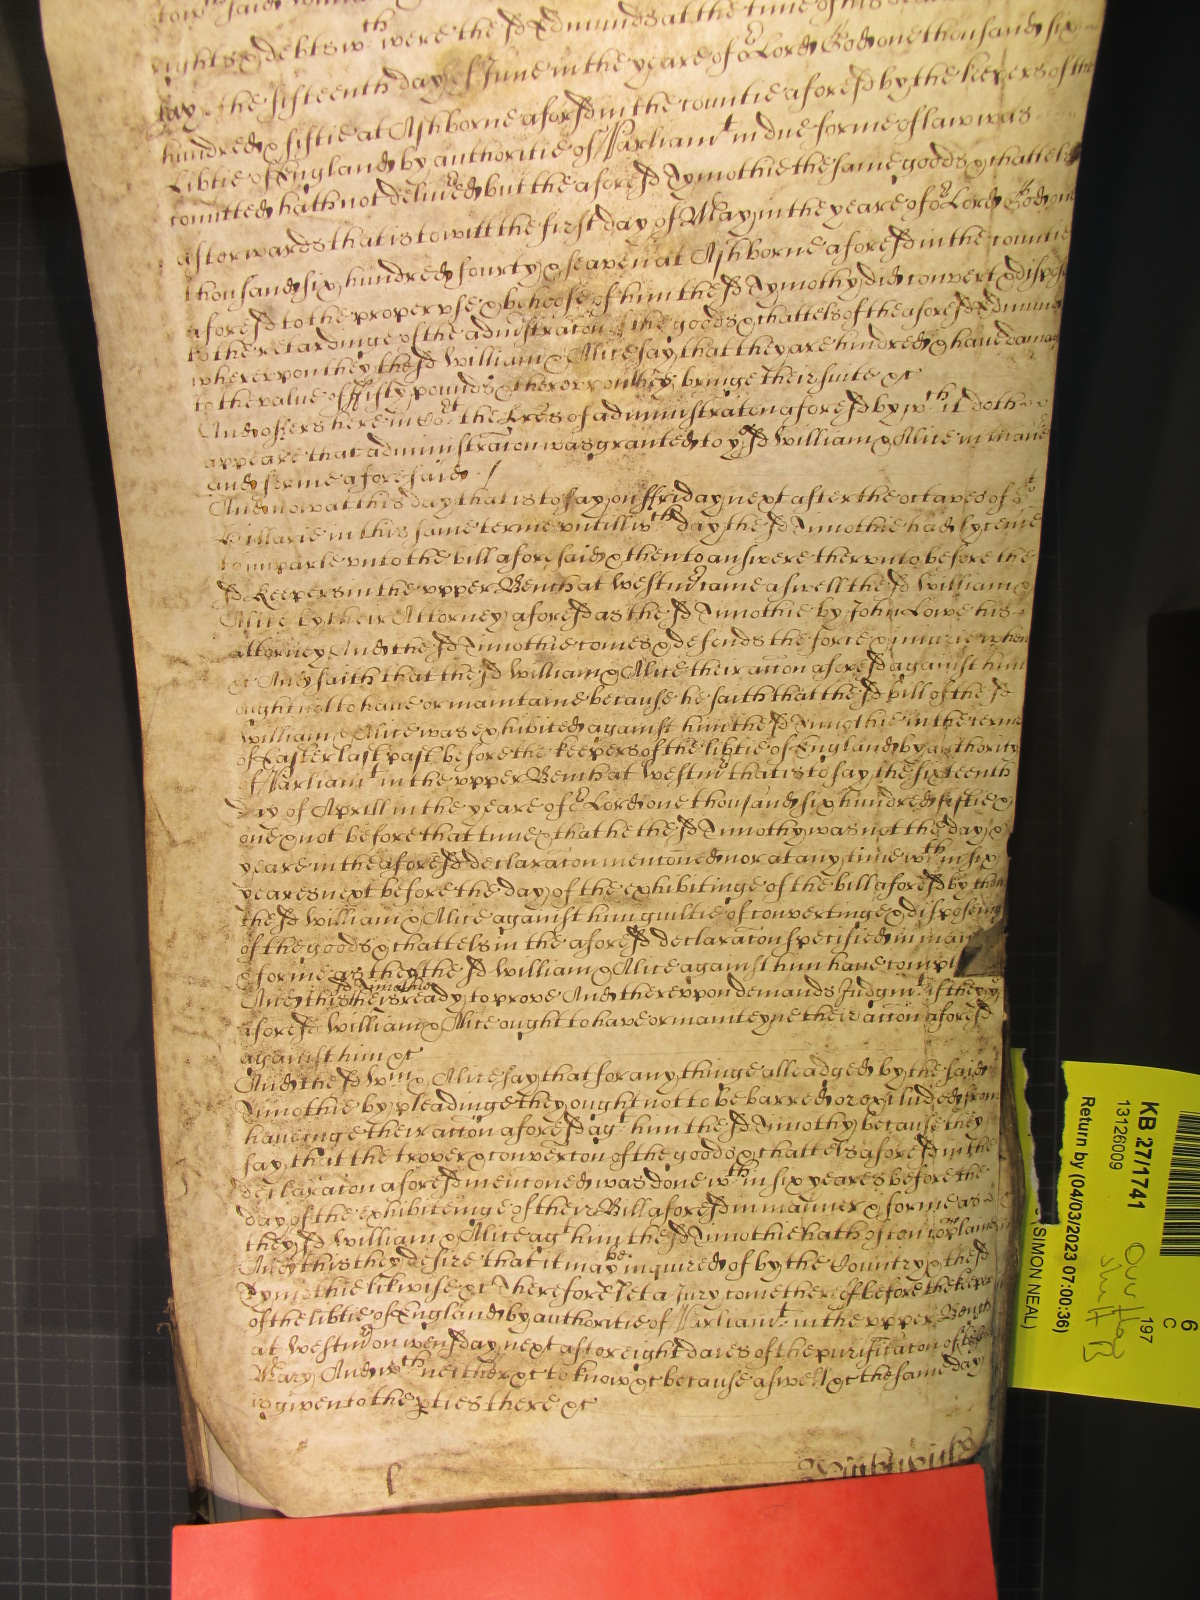 rights & debts wth were the sd Edmunds at the time of his
say the fifteenth day of June in the yeare of or Lord God one thousand six
hundred & fiftie at Ashborne aforesd in the countie aforesd by the keepers of the
Libtie of England by authoritie of Parliamt in due forme of law was
comitted hath not delived but the aforesd Tymothie the same goods & chattels
afterwards that is to witt the first day of May in the yeare of or Lord God one
thousand six hundred fourty & seaven at Ashborne aforesd in the countie
aforesd to the proper vse & behoofe of him the sd Tymothy did convert & dispose
to the retardinge of the administracon of the goods & chattels of the aforesd Edmund
wherevpon they the sd William & Alice say that they are hindred & have damage
to the value of ffifty pounds & therevpon they bringe their suite &c
And offers here in Cort the Lres of administracon aforesd by wth it doth
appeare that administracon was granted to ye sd William & Alice in mane
and forme aforesaid /
And now at this day that is to say on ffriday next after the octaves of st
Hillarie in this same terme vntill wth day the sd Timothie had lycence
to imparle vnto the bill aforesaid & then to answere thervnto before the
sd Keepers in the vpper Bench at Westmr came aswell the sd William &
Alice by their Attorney aforesd as the sd Timothie by John Lowe his
attorney And the sd Timothie comes & defends the force & iniurie when
&c And saith that the sd William & Alice their accon aforesd against him
ought not to have or maintaine because he saith that the sd bill of the sd
William & Alice was exhibited against him the sd Timothie in the terme
of Easter last past before the keepers of the libtie of England by authority
of Parliamt in the vpper Bench at Westmr that is to say the sixteenth
day of Aprill in the yeare of or Lord one thousand six hundred fiftie &
one & not before that time & that he the sd Timothy was not the day &
yeare in the aforesd declaracon menconed nor at any time wth in six
yeares next before the day of the exhibitinge of the bill aforesd by them
the sd William & Alice against him guiltie of convertinge & disposeing
of the goods & chattels in the aforesd declaracon specified in man
& forme as they the sd William & Alice against him have compl
And this the sd Timothie is ready to prove And therevpon demands Judgmt if they ye
aforesd William & Alice ought to have or mainteyne their accon aforesd
against him &c
And the sd Wm & Alice say that for any thinge alleadged by the said
Timothie by pleadinge they ought not to be barred or excluded from
haveinge their accon aforesd agt him the sd Timothy because they
say that the trover & convercon of the goods & chattels aforesd in the
declaracon aforesd menconed was done wth in six yeares before the
day of the exhibiteinge of their Bill aforesd in manner & forme as
they sd William & Alice agt him the sd Timothie hath
And this they desire that it may be inquired of by the Country & the sd
Tymothie likwise &c Therefore let a Jury come therof before the keepers
of the libtie of England by authoritie of Parliamt in the vpper Bench
at Westmr on wensday next after eight daies of the purificacon of
Mary And wth neither &c to know &c because aswell &c the same day
is given to the pties there &c
KB 27/1741
13126009
Return by (04/03/2023 07:00:36)
(SIMON NEAL)
197
C
6